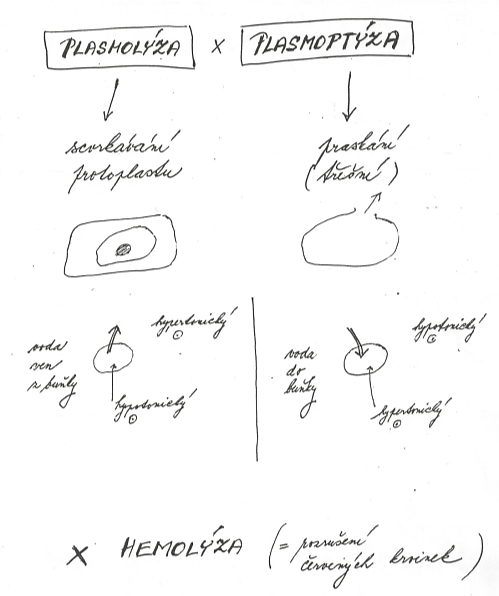 PLASMOLÝZA x PLASMOPTÝZA
scvrkávání
protoplastu
praskání
(třeštní)
voda
ven
z buňky
hypertonický
hypotonický
voda
do
buňky
hypotonický
hypertonický
x HEMOLÝZA (= rozrušení
červených krvinek)